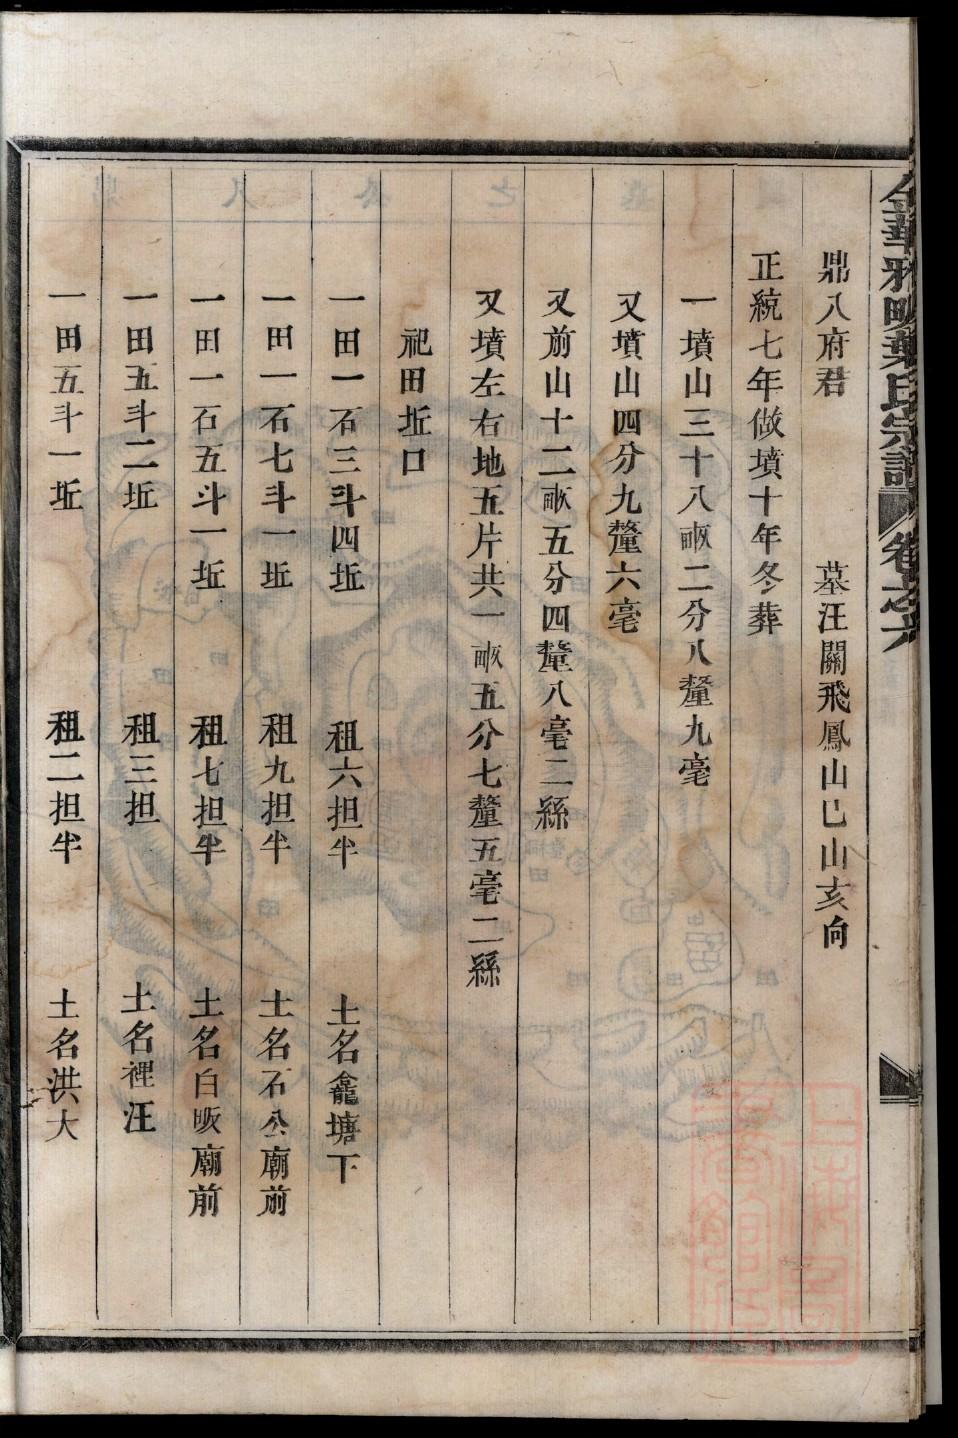 金華雅畈葉氏宗譜 卷之六
鼎八府君 墓汪關飛鳳山巳山亥向
正統七年做墳十年冬葬
一墳山三十八畝二分八釐九毫
又墳山四分九釐六毫
又前山十二畝五分四釐八毫二絲
又墳左右地五片共一畝五分七釐五毫二絲
祀田坵口
一田一石三斗四坵 租六担半 土名龕塘下
一田一石七斗一坵 租九担半 土名石公廟前
一田一石五斗一坵 租七担半 土名白畈廟前
一田五斗二坵 租三担 土名裡汪
一田五斗一坵 租二担半 土名洪大